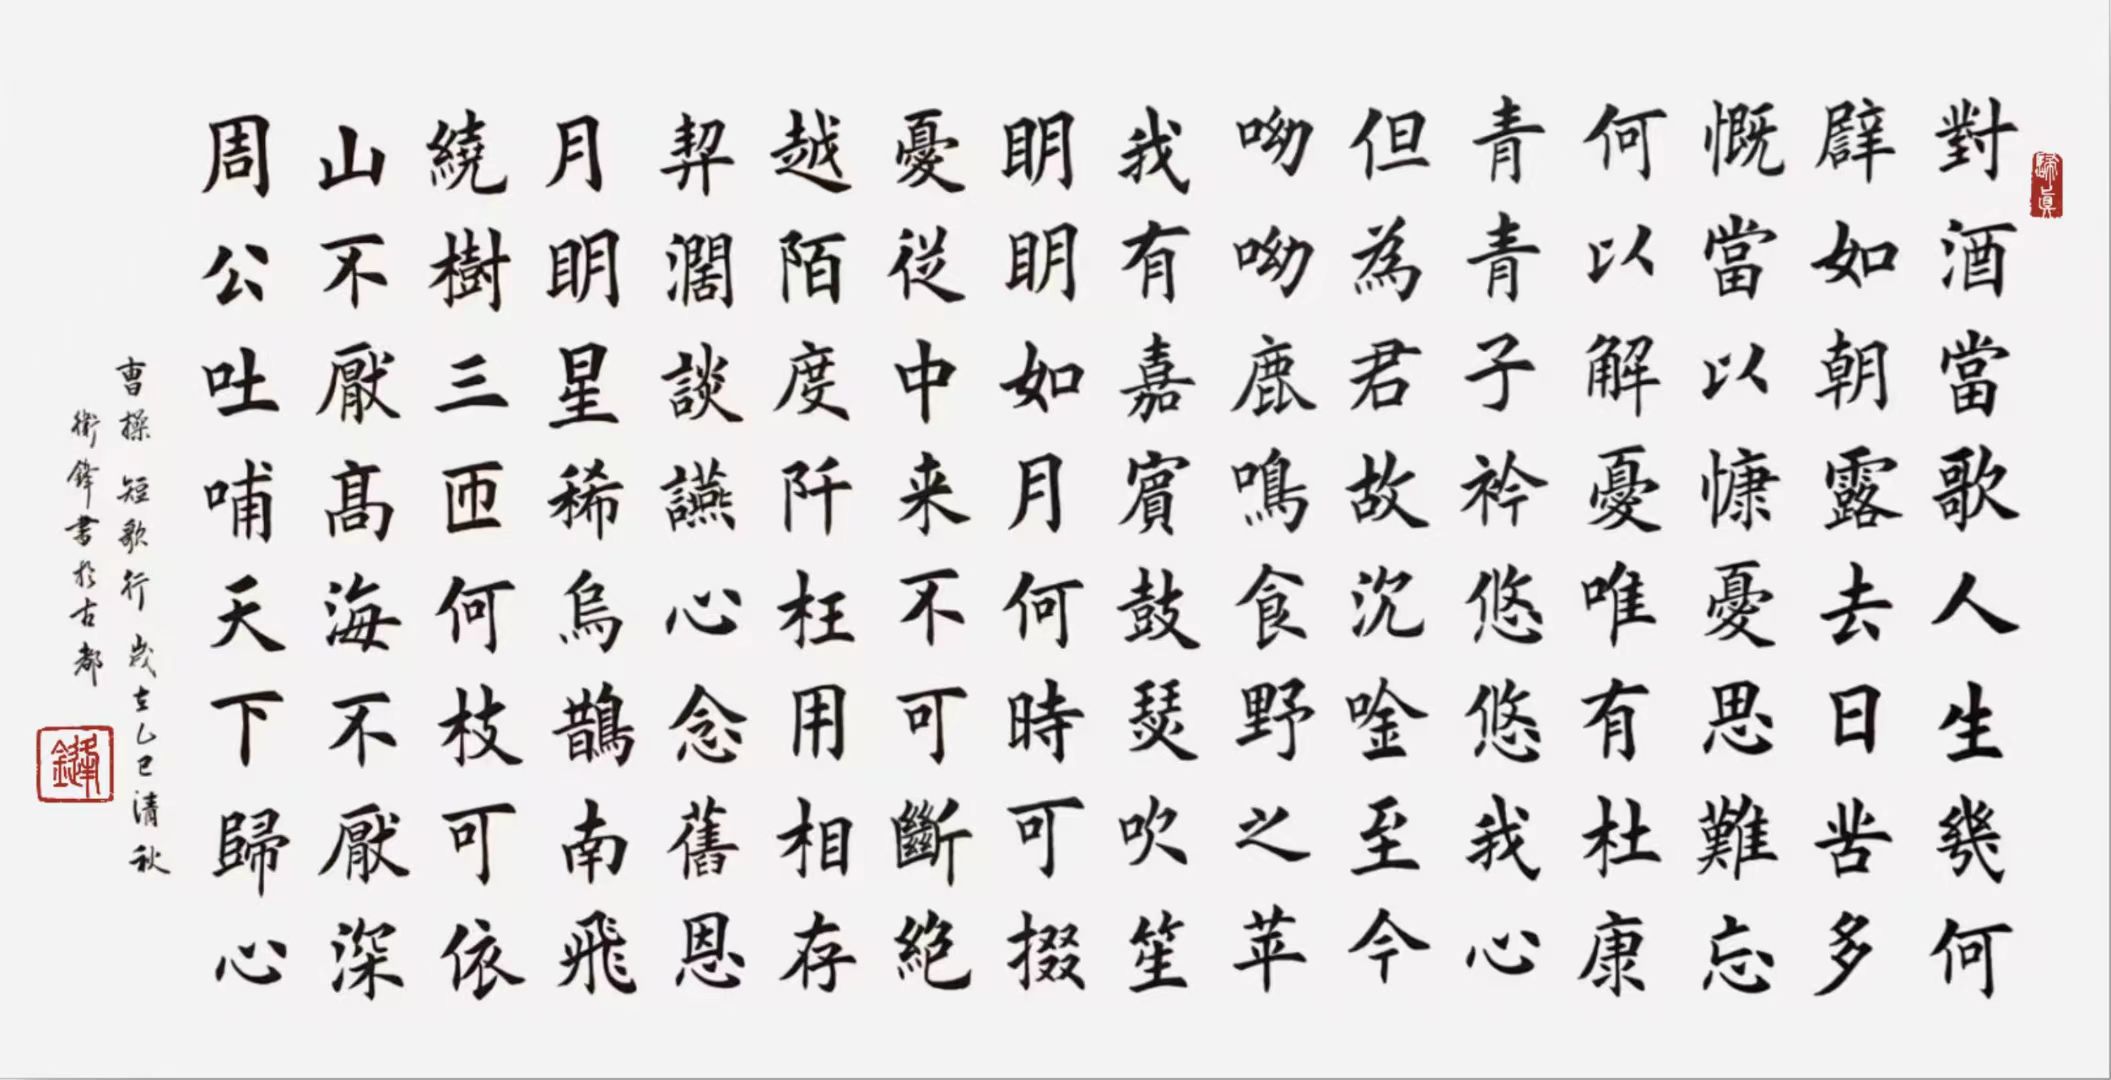 對酒當歌人生幾何
辟如朝露去日苦多
慨當以慷憂思難忘
何以解憂唯有杜康
青青子衿悠悠我心
但為君故沉唫至今
呦呦鹿鳴食野之苹
我有嘉賓鼓瑟吹笙
眀眀如月何時可掇
憂從中来不可斷絕
越陌度阡枉用相存
契濶談讌心念舊恩
月眀星稀烏鵲南飛
繞樹三匝何枝可依
山不厭髙海不厭深
周公吐哺天下歸心
曹操 短歌行 歲在乙巳清秋
衛鋒書於古都
鋒